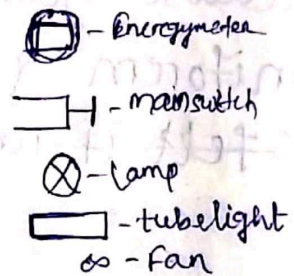 - Energymeter
- mainswitch
- Lamp
- tubelight
- Fan